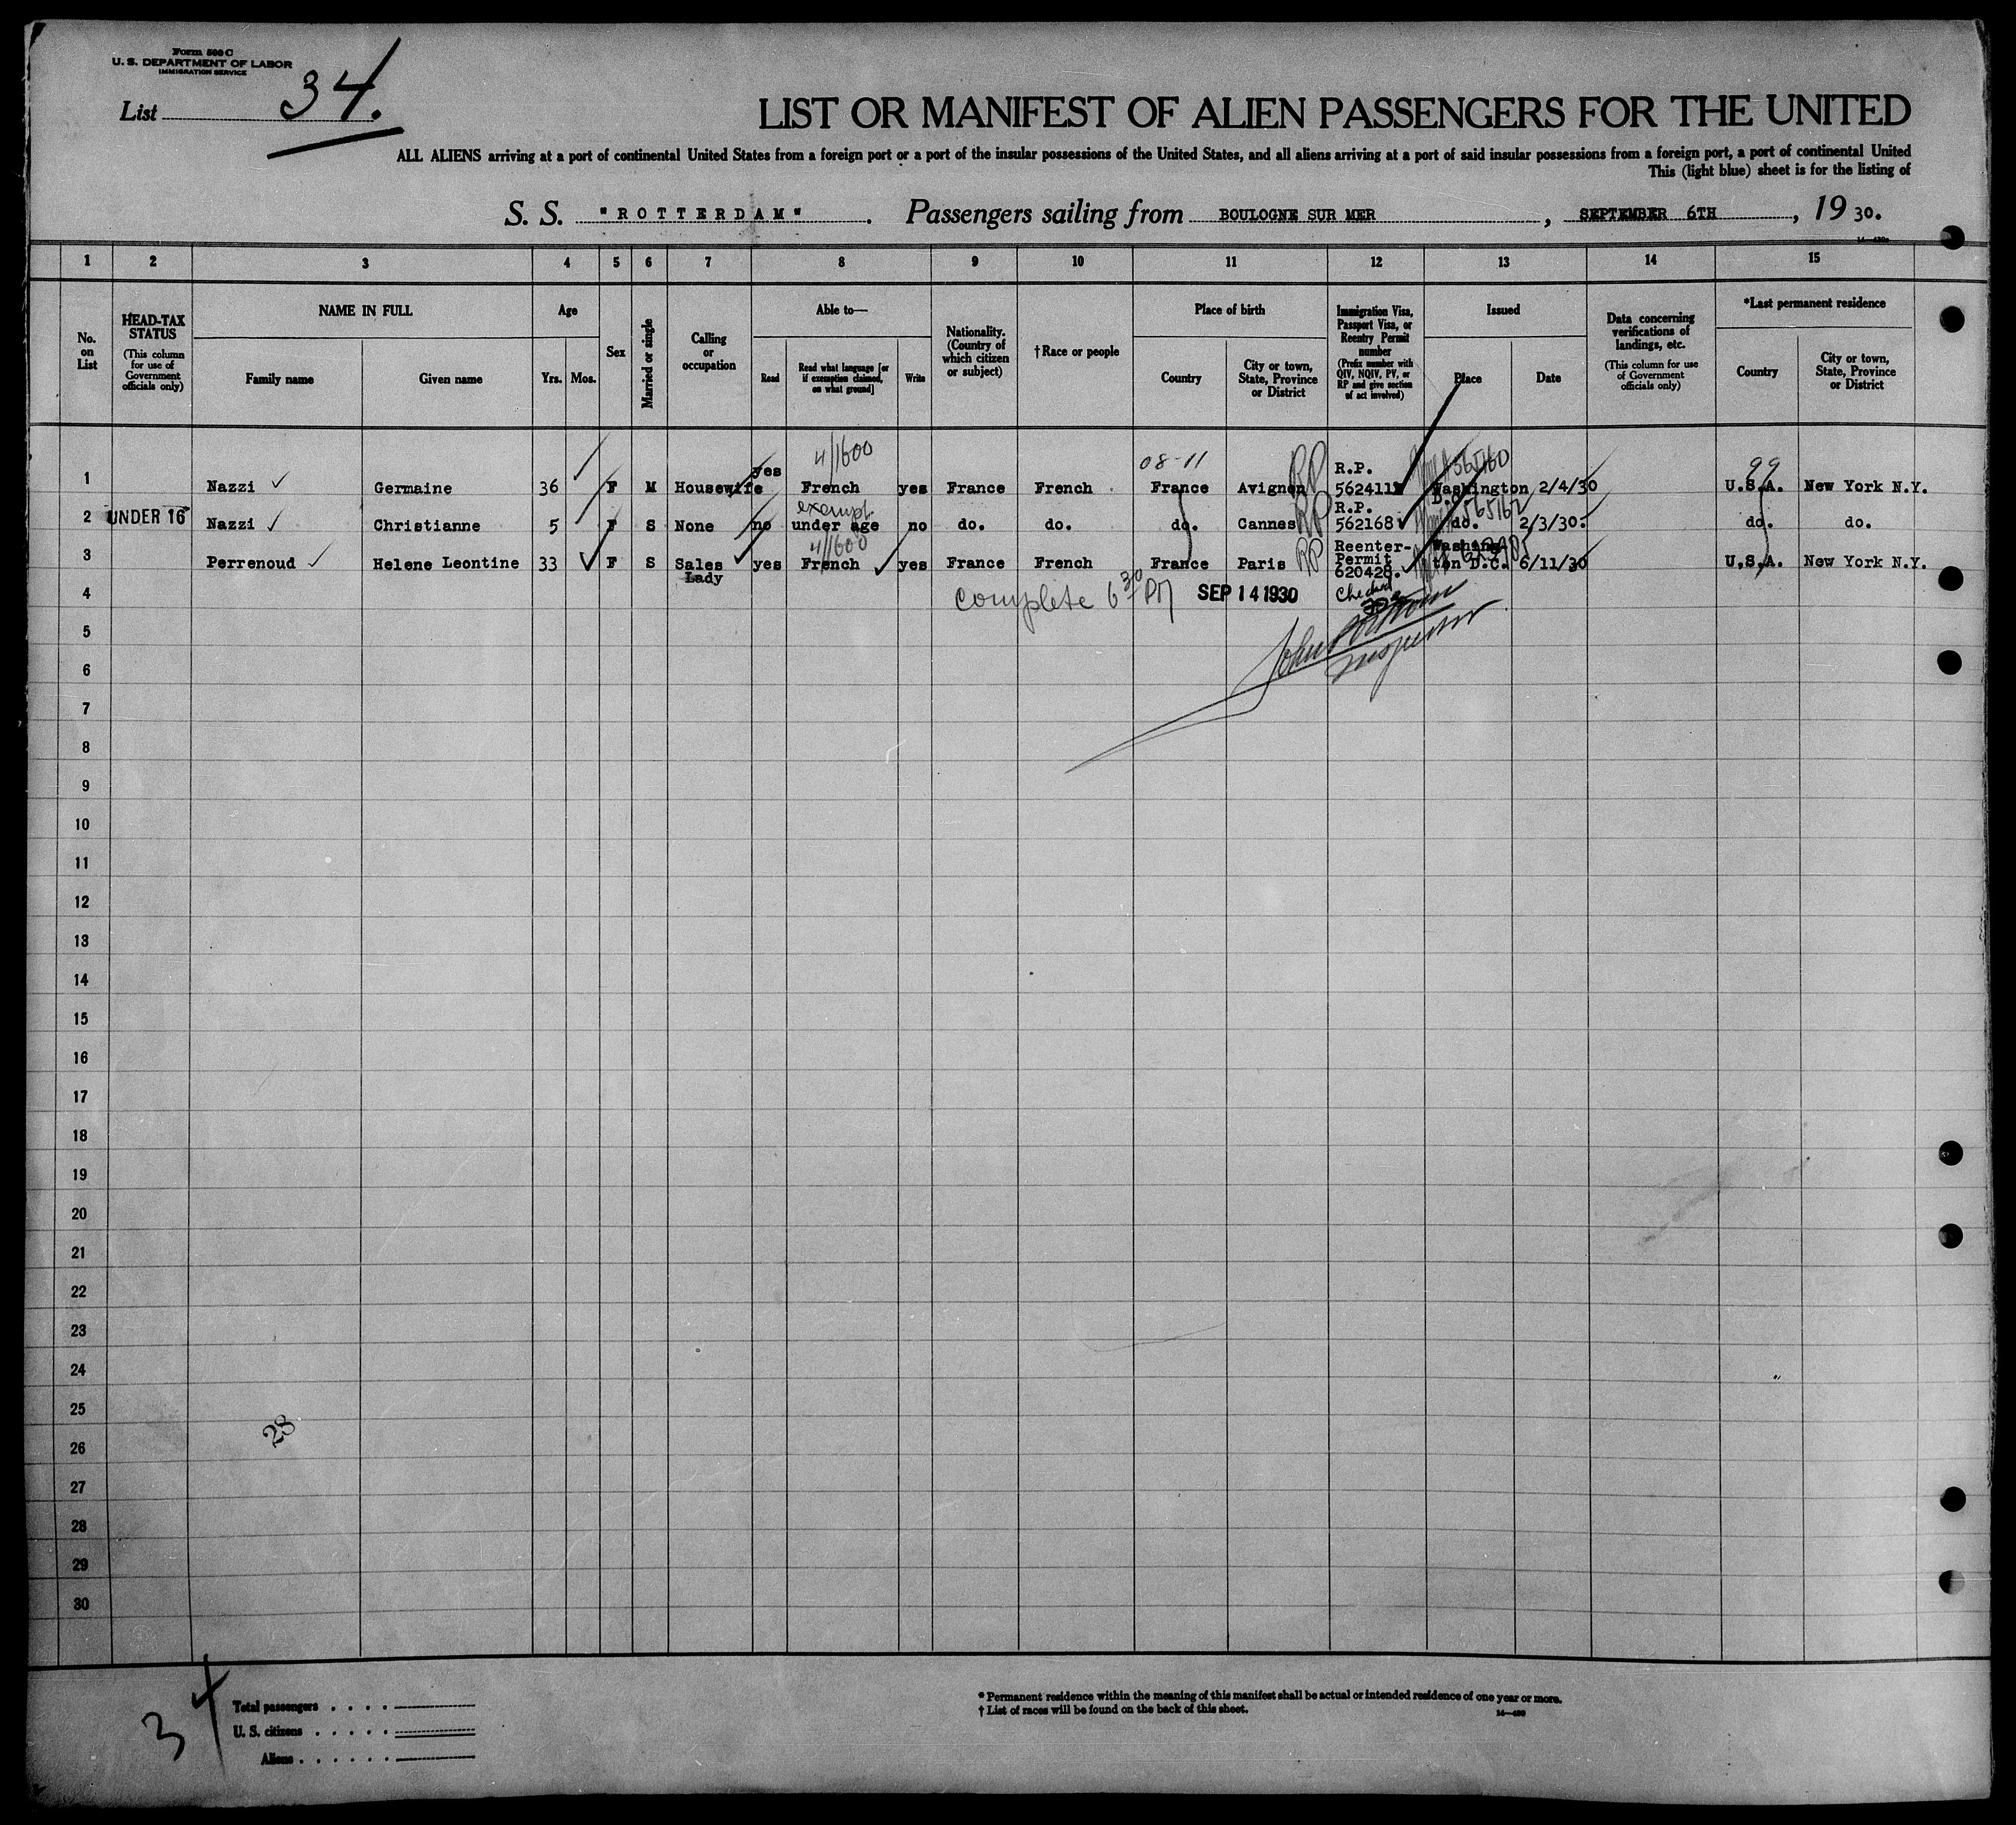 Form 500 C
U. S. DEPARTMENT OF LABOR
IMMIGRATION SERVICE
List 34.
LIST OR MANIFEST OF ALIEN PASSENGERS FOR THE UNITED
ALL ALIENS arriving at a port of continental United States from a foreign port or a port of the insular possessions of the United States, and all aliens arriving at a port of said insular possessions from a foreign port, a port of continental United
This (light blue) sheet is for the listing of
S. S. "ROTTERDAM". Passengers sailing from BOULOGNE SUR MER, SEPTEMBER 6TH, 19 30.
1 2 3 4 5 6 7 8 9 10 11 12 13 14 15
No. on List
HEAD-TAX STATUS (This column for use of Government officials only)
NAME IN FULL Family name Given name
Age Yrs. Mos.
Sex
Married or single
Calling or occupation
Able to— Read Read what language [or if exemption claimed, on what ground] Write
Nationality. (Country of which citizen or subject)
† Race or people
Place of birth Country City or town, State, Province or District
Immigration Visa, Passport Visa, or Reentry Permit number (Prefix number with QIV, NQIV, PV, or RP and give section of act involved)
Issued Place Date
Data concerning verifications of landings, etc. (This column for use of Government officials only)
*Last permanent residence Country City or town, State, Province or District
4/1600 08-11 99
1 Nazzi Germaine 36 F M Housewife yes French yes France French France Avignon RP R.P. Washington D.C. 2/4/30 U.S.A. New York N.Y.
exempt
2 UNDER 16 Nazzi Christianne 5 F S None no under age no do. do. do. Cannes RP R.P. 562168 do. 2/3/30. do. do.
4/1600
3 Perrenoud Helene Leontine 33 F S Sales Lady yes French yes France French France Paris RP Reenter-Permit 620428. Washington D.C. 6/11/30 U.S.A. New York N.Y.
4 complete 6 30 PM SEP 14 1930 Checked
5
Inspector
6
7
8
9
10
11
12
13
14
15
16
17
18
19
20
21
22
23
24
25
28
26
27
28
29
30
34
Total passengers . . . .
U. S. citizens . . . . .
Aliens . . . . . .
* Permanent residence within the meaning of this manifest shall be actual or intended residence of one year or more.
† List of races will be found on the back of this sheet.
14—430